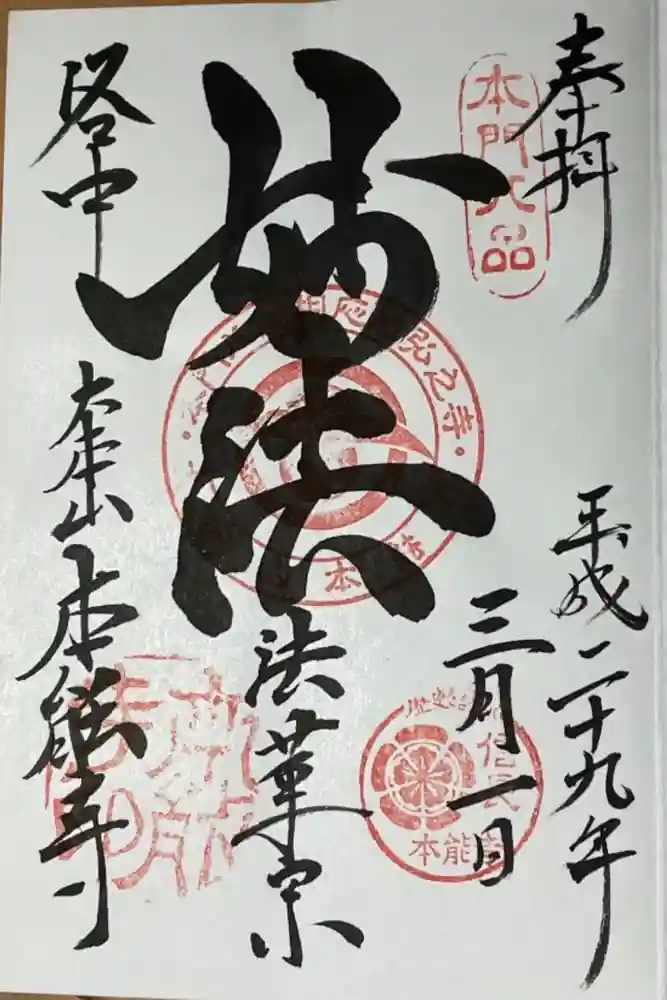 奉拝
本門八品
平成二十九年
三月一日
妙法
法華宗
洛中
大本山 本能寺
弘之寺
信長
本能寺